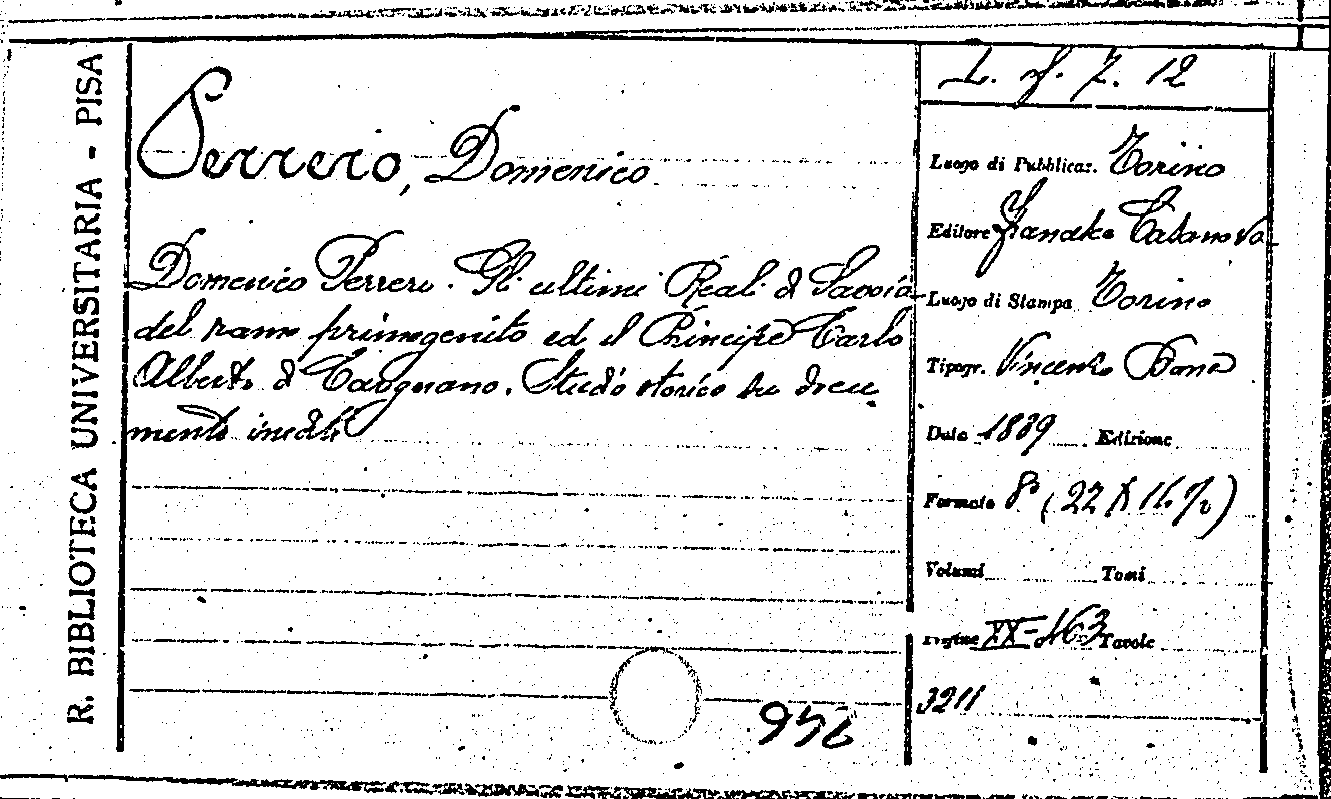 R. BIBLIOTECA UNIVERSITARIA - PISA
Perrero, Domenico
Domenico Perrero. Gli ultimi Reali di Savoia
del ramo primogenito ed il Principe Carlo
Alberto di Carignano. Studio storico su docu-
menti inediti
946
L. f. 7. 12
Luogo di Pubblicaz. Torino
Editore Casanova
Luogo di Stampa Torino
Tipogr. Vincenzo Bona
Data 1889 Edizione
Formato 8° (22 X 14 1/2)
Volumi Tomi
Pagine XX-463 Tavole
3211